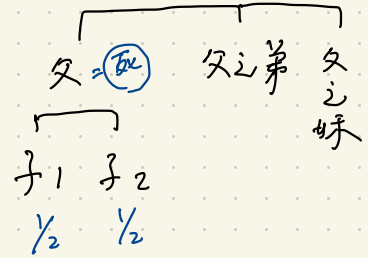 父 = 歿 父之弟 父之妹
子1 子2
1/2 1/2